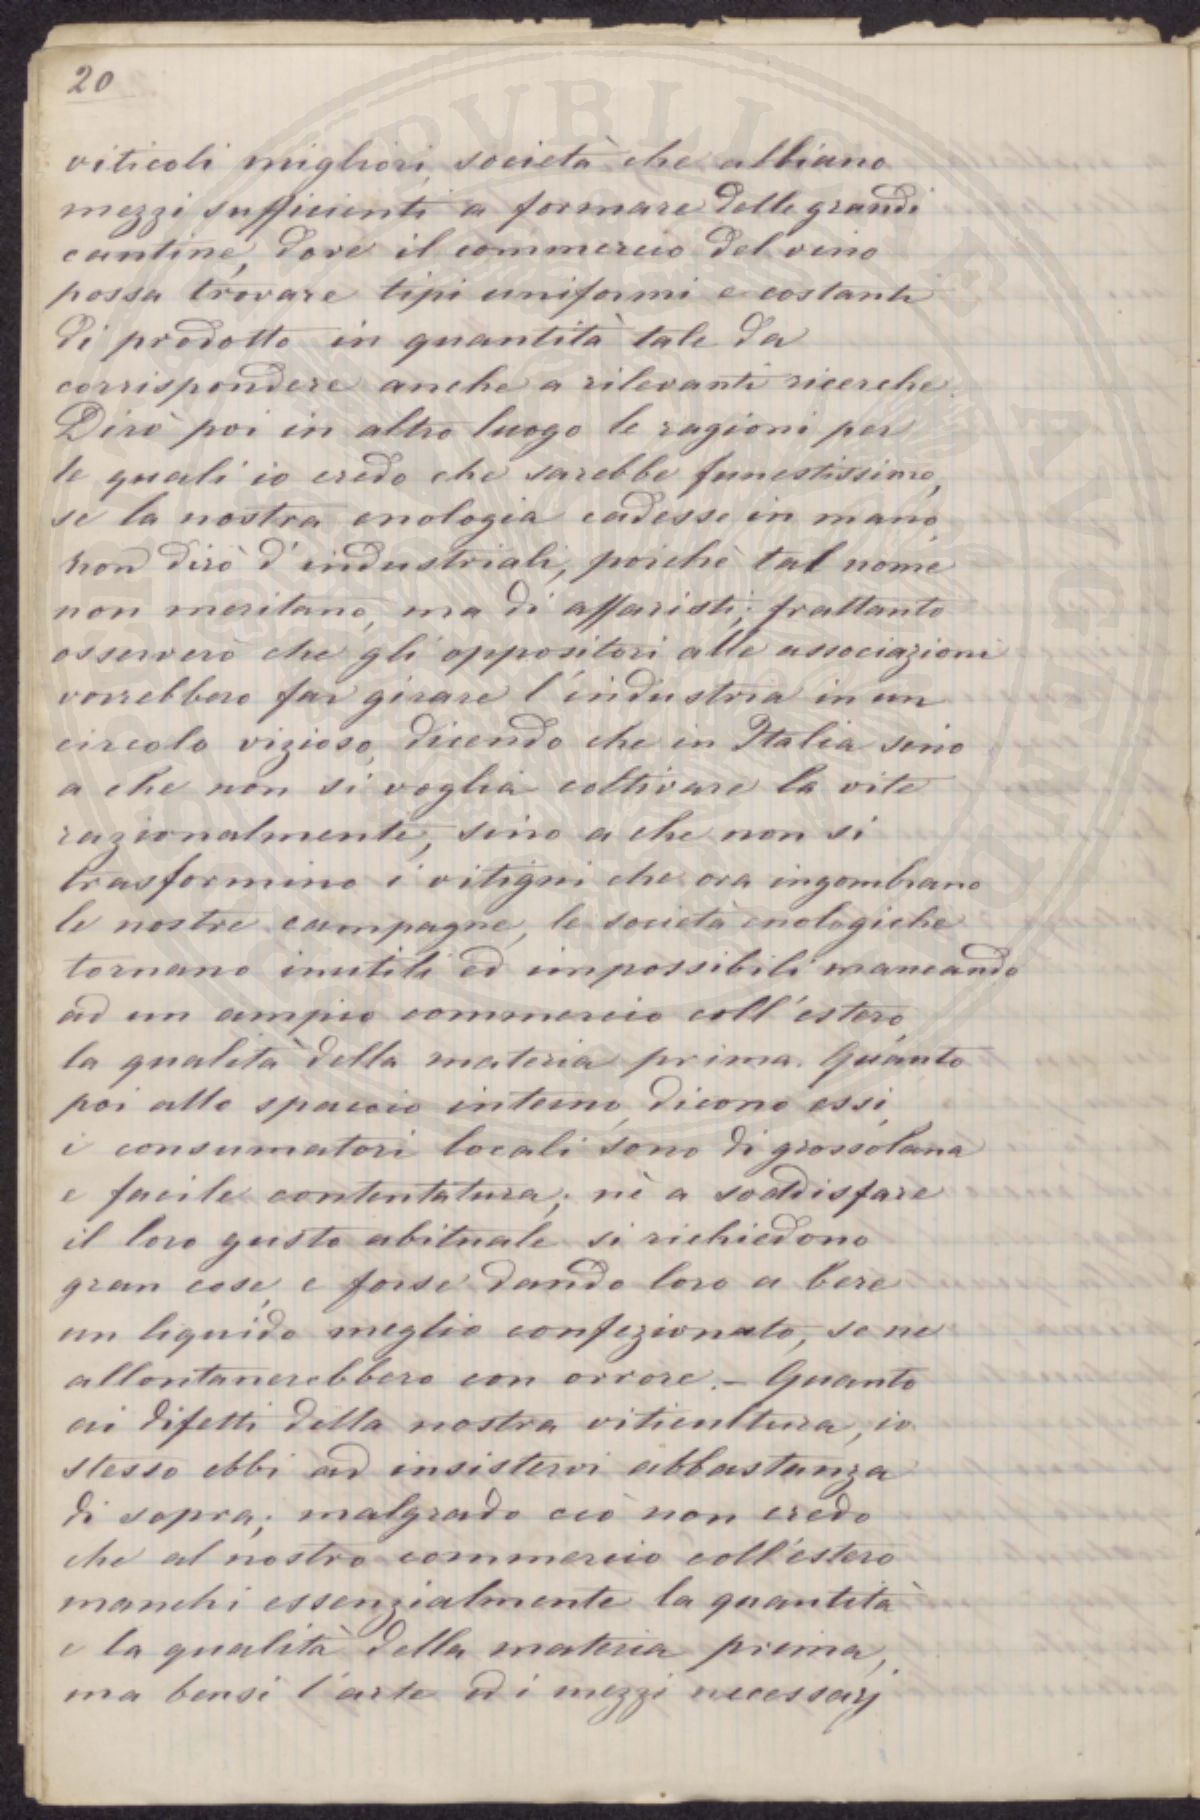 20
viticoli migliori, società che abbiano
mezzi sufficienti a formare delle grandi
cantine, dove il commercio del vino
possa trovare tipi uniformi e costanti
di prodotto in quantità tale da
corrispondere anche a rilevanti ricerche.
Dirò poi in altro luogo le ragioni per
le quali io credo che sarebbe funestissimo,
se la nostra enologia cadesse in mano,
non dirò d'industriali, poichè tal nome
non meritano, ma di affaristi; frattanto
osserverò che gli oppositori alle associazioni
vorrebbero far girare l'industria in un
circolo vizioso, dicendo che in Italia sino
a che non si voglia coltivare la vite
razionalmente, sino a che non si
trasformino i vitigni che ora ingombrano
le nostre campagne, le società enologiche
tornano inutili ed impossibili mancando
ad un ampio commercio coll'estero,
la qualità della materia prima. Quanto
poi allo spaccio interno, dicono essi,
i consumatori locali sono di grossolana
e facile contentatura; nè a soddisfare
il loro gusto abituale si richiedono
gran cose, e forse dando loro a bere
un liquido meglio confezionato, se ne
allontanerebbero con orrore. – Quanto
ai difetti della nostra viticultura, io
stesso ebbi ad insistervi abbastanza
di sopra; malgrado ciò non credo
che al nostro commercio coll'estero
manchi essenzialmente la quantità
e la qualità della materia prima,
ma bensì l'arte ed i mezzi necessarj